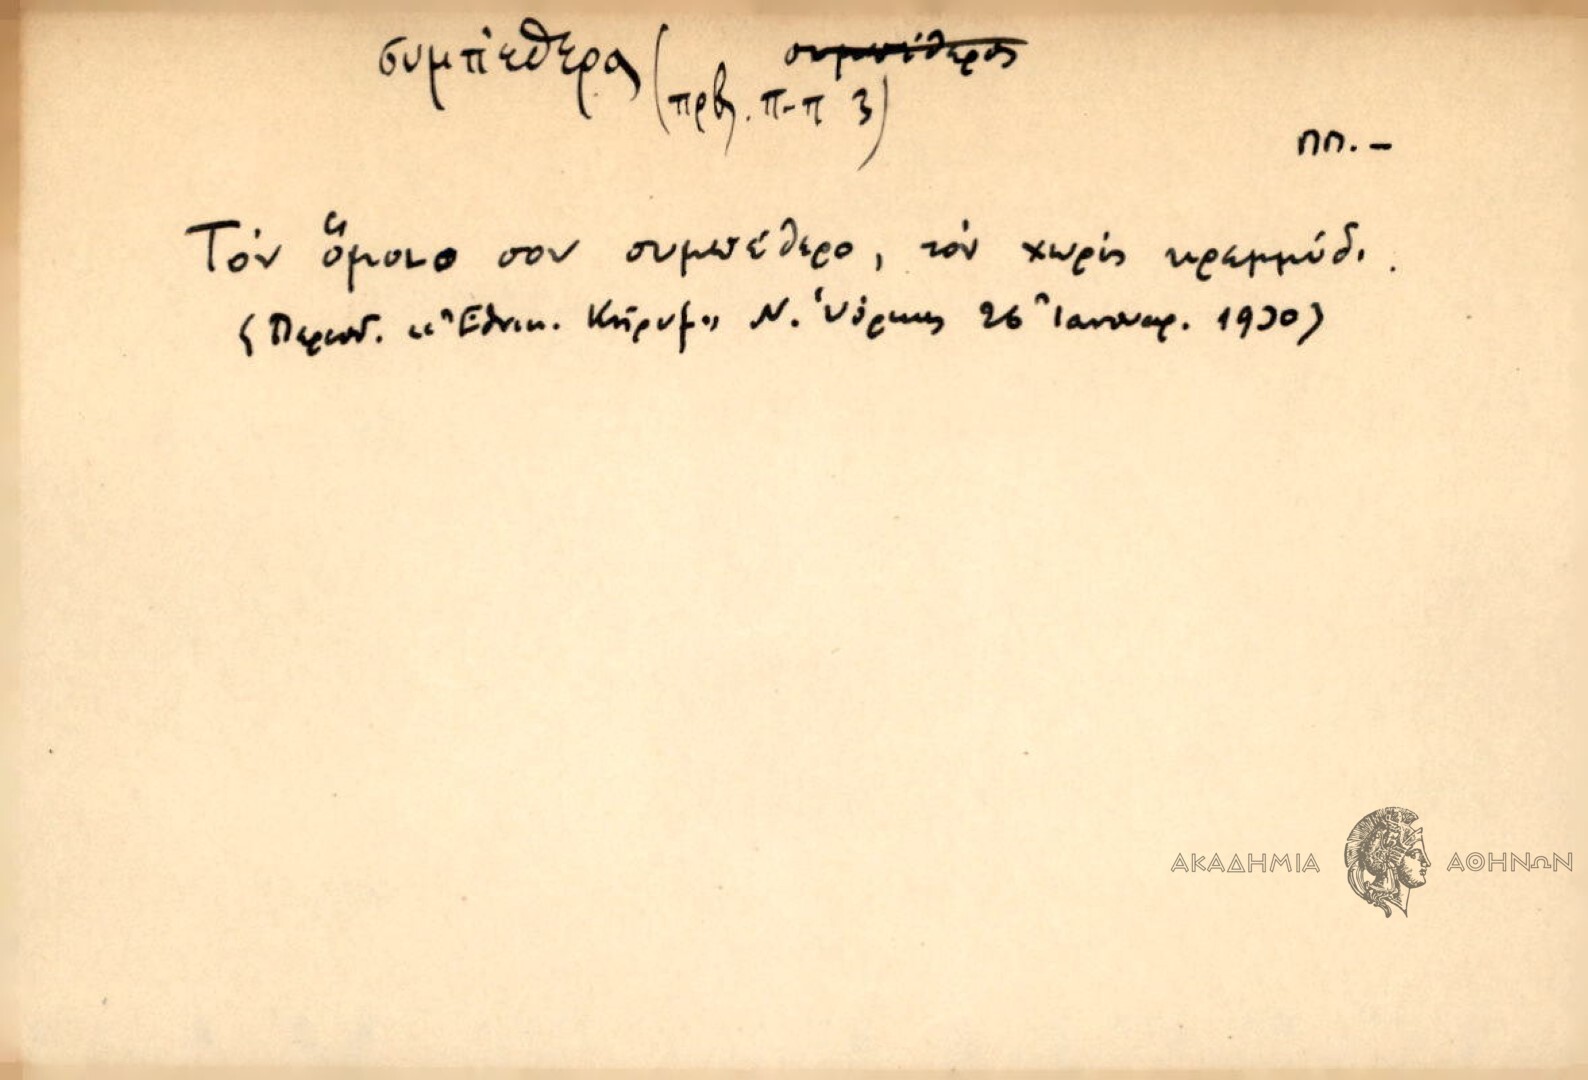 συμπέθερος συμπέθερος
(πρβ. π-π 3)
ππ. -
Τόν ὅμοιο σου συμπέθερο, τόν χωρίς κρεμμύδι.
(Περιοδ. «Ἐθνικ. Κῆρυξ» Ν. Ὑόρκης 26 Ἰανουαρ. 1930)
ΑΚΑΔΗΜΙΑ ΑΘΗΝΩΝ